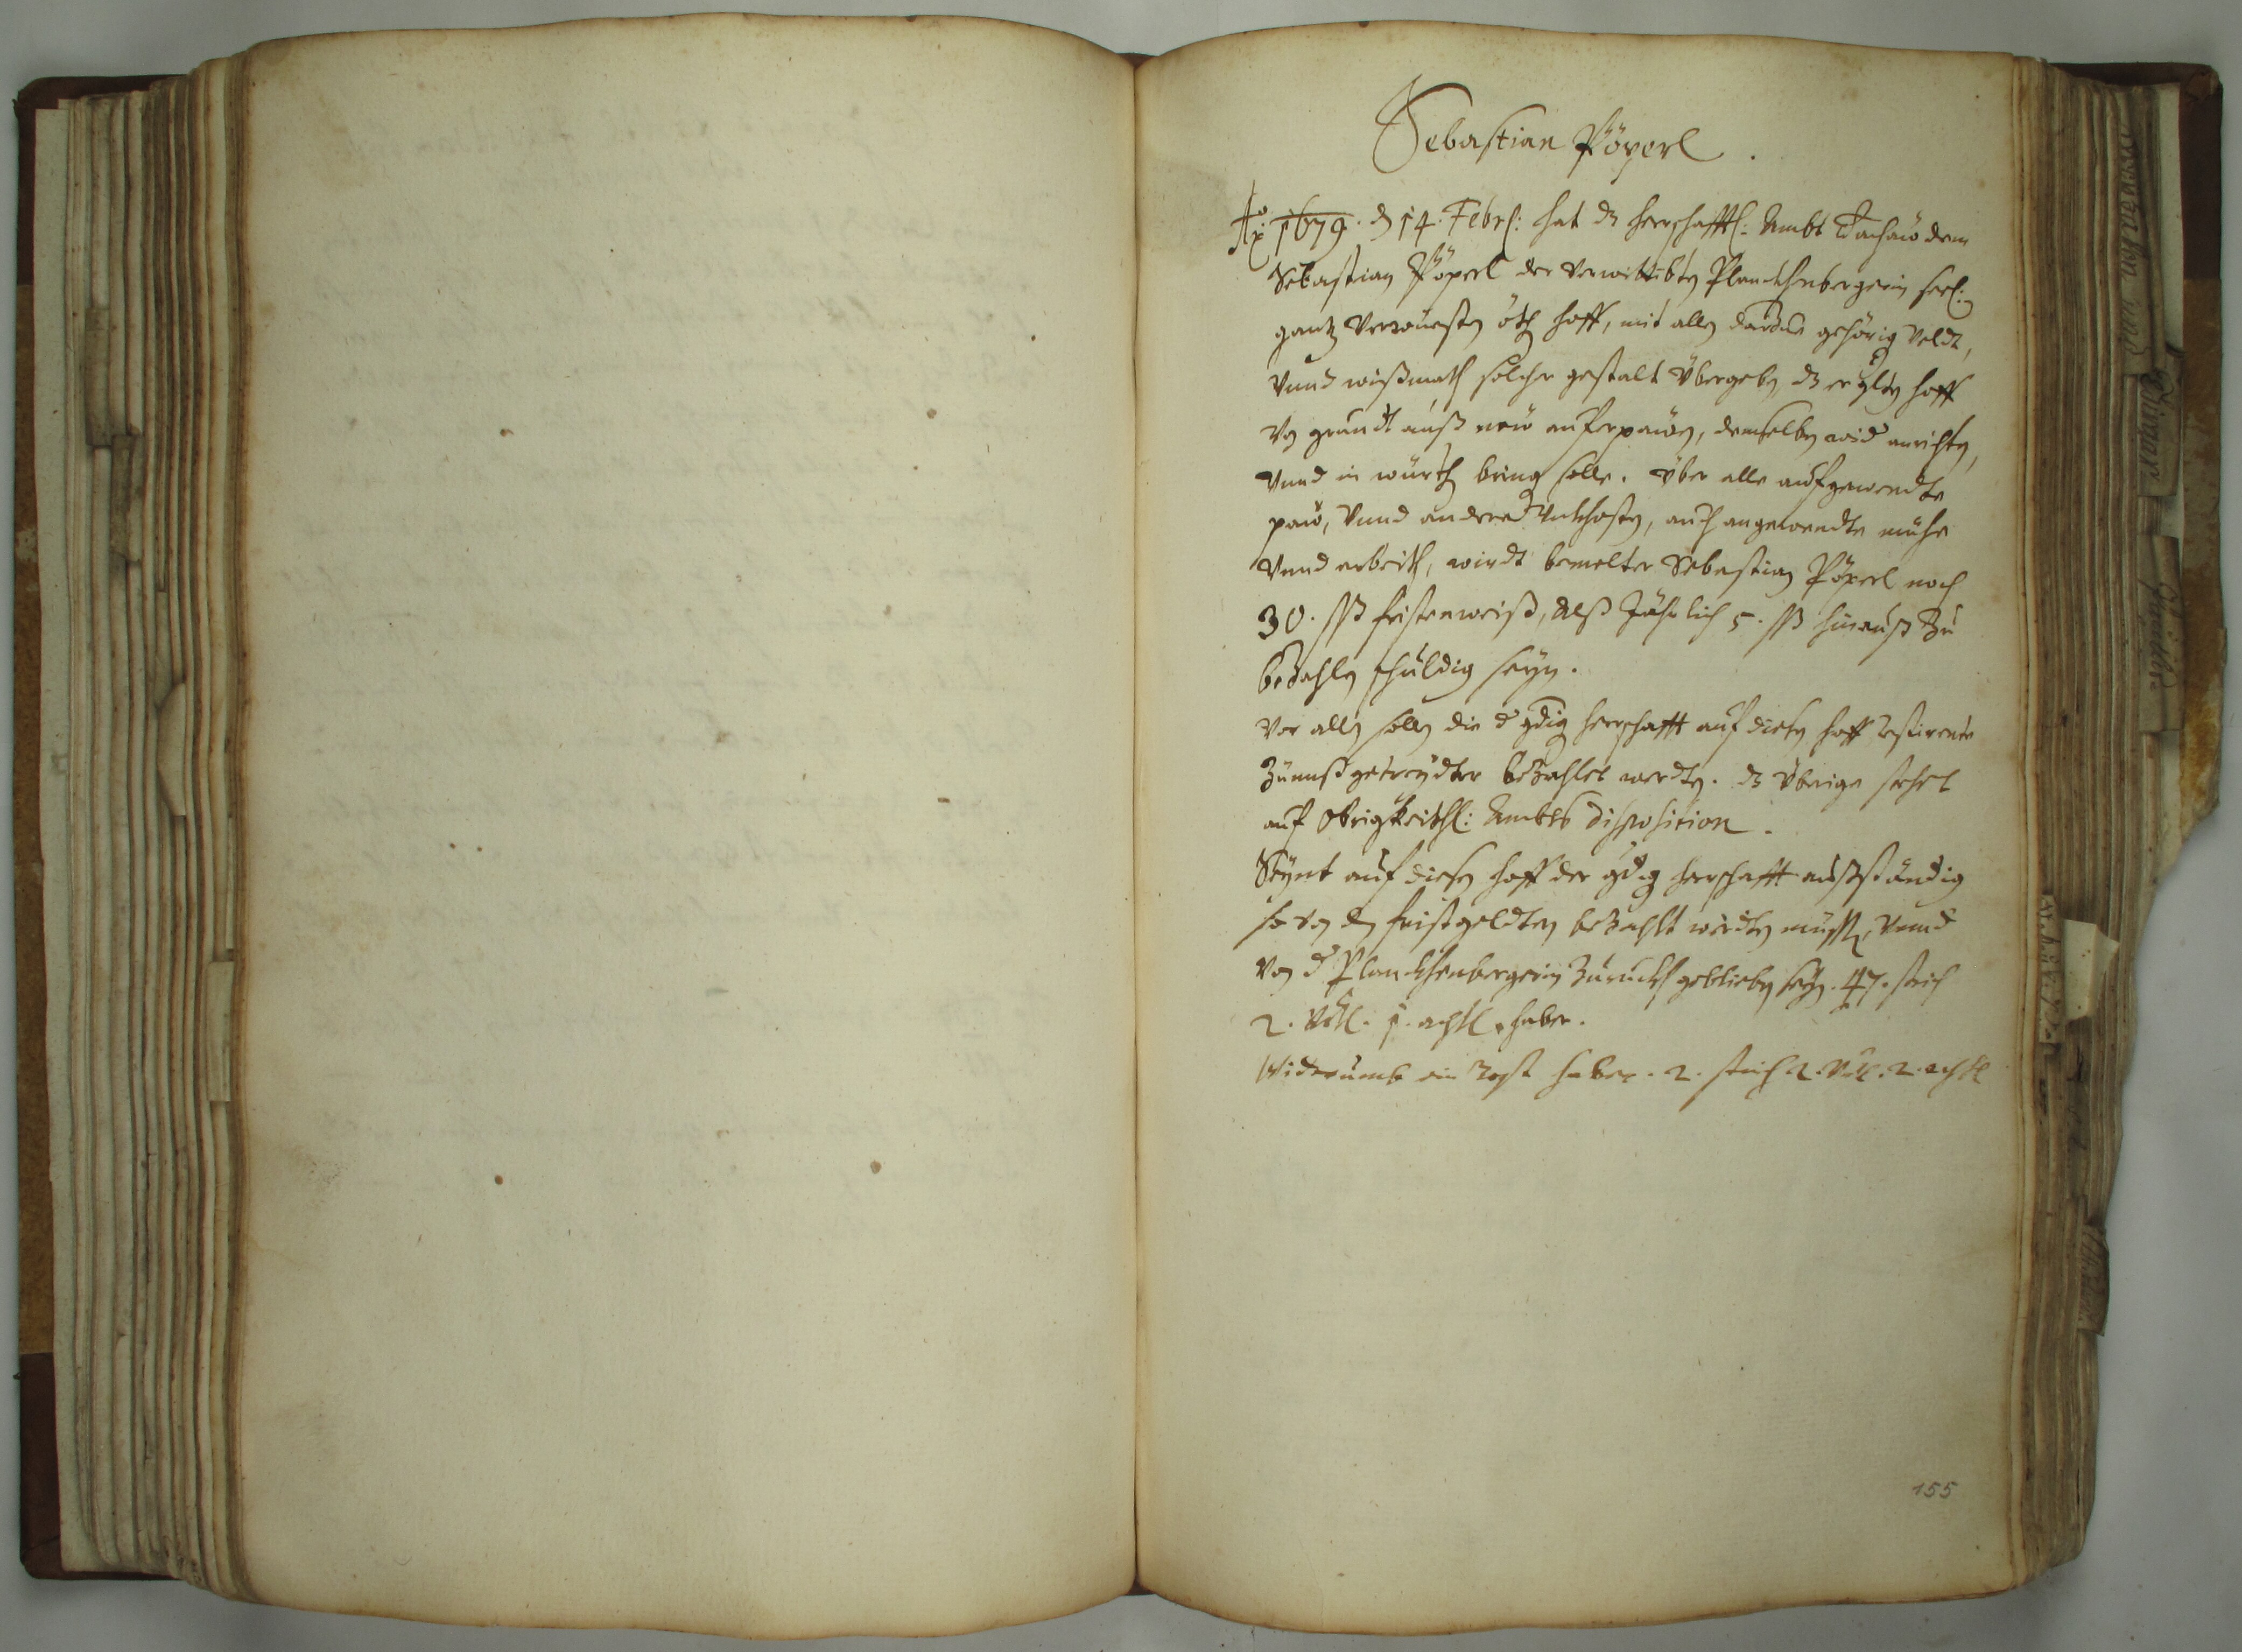 Sebastian Pöperl.
Ao: 1679. dn 14. Febrl: hat dz herrschafftl: Ambt Tachaw dem
Sebastian Pöperl der verwittibten Planckhenbergerin seel:
gantz verwüesten öth hoff, mit allen darzue gehörig veldt,
vnnd wißmath solcher gestalt übergeben, dz er hoff
von grundt auß new auferpawen, denselben wid anrichten,
vnnd in würth bring solle. über alle aufgewendte
paw, vnnd andere vnkhosten, auch angewendte mühe
vnnd arbeith, wirdt bemelter Sebastian Pöperl noch
30. ßß fristenweiß, alß Jährlich 5. ßß hinauß zu
bezahlen schuldig seyn.
vor allen sollen die d gdig herrschafft auf diesen hoff restirente
Zünnßgetreydter bezahlet werdten. dz übrige stehet
auf Obrigkeithl: Ambts disposition.
Seynt auf diesen hoff der gdig herrschafft außständig
so von den fristgeldten bezahlt werdten müssen, vnnd
von d Planckhenbergerin zuruckh geblieben seyn. 47. strich
2. vrtl. 1. achtl haber.
Widerumb ein rest haber. 2. strich 2. vrtl. 2. achtl
155